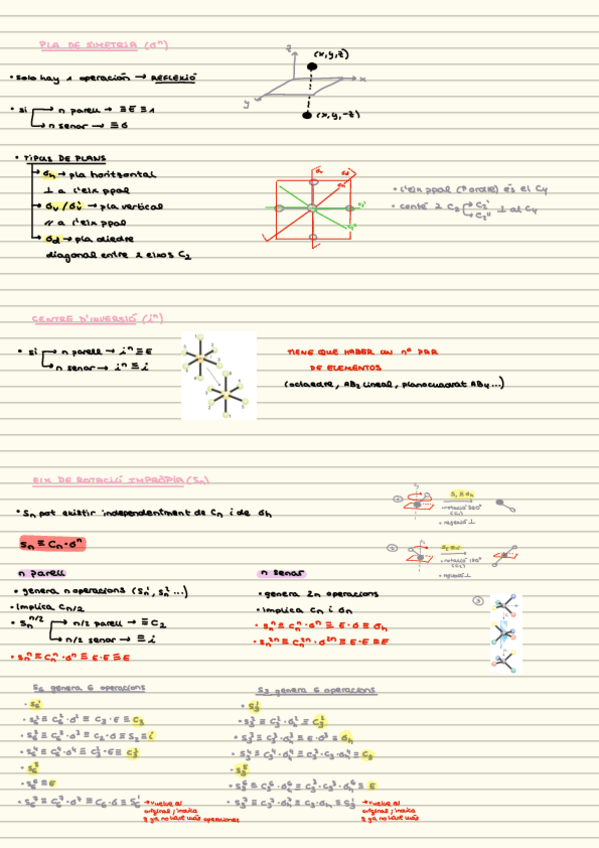 PLA DE SIMETRIA (σⁿ)
• Solo hay 1 operación → REFLEXIÓ
• si n parell → ≡ E ≡ 1
n senar → ≡ σ
z
(x,y,z)
x
y
(x,y,-z)
• TIPUS DE PLANS
σh → pla horitzontal
⊥ a l'eix ppal
σv / σv' → pla vertical
// a l'eix ppal
σd → pla diedre
diagonal entre 2 eixos C2
• L'eix ppal (↑ ordre) és el C4
• conté 2 C2 C2' C2'' ⊥ al C4
CENTRE D'INVERSIÓ (iⁿ)
• si n parell → iⁿ ≡ E
n senar → iⁿ ≡ i
TIENE QUE HABER UN nº PAR
DE ELEMENTOS
(octaedre, AB2 lineal, planoquadrat AB4...)
EIX DE ROTACIÓ IMPRÒPIA (Sn)
• Sn pot existir independentment de Cn i de σh
Sn ≡ Cn · σⁿ
① S1 ≡ σh
• rotació 360°
(C1)
• reflexió ⊥
② S2 ≡ i
• rotació 180°
(C2)
• reflexió ⊥
③
n parell
• genera n operacions (Sn¹, Sn² ...)
• implica Cn/2
• Sn^n/2 n/2 parell → ≡ C2
n/2 senar → ≡ i
• Snⁿ ≡ Cnⁿ · σⁿ ≡ E · E ≡ E
n senar
• genera 2n operacions
• implica Cn i σn
• Snⁿ ≡ Cnⁿ · σⁿ ≡ E · σ ≡ σh
• Sn²ⁿ ≡ Cn²ⁿ · σ²ⁿ ≡ E · E ≡ E
S6 genera 6 operacions
• S6¹
• S6² ≡ C6² · σ² ≡ C3 · E ≡ C3
• S6³ ≡ C6³ · σ³ ≡ C2 · σ ≡ S2 ≡ i
• S6⁴ ≡ C6⁴ · σ⁴ ≡ C3² · E ≡ C3²
• S6⁵
• S6⁶ ≡ E
• S6⁷ ≡ C6⁷ · σ⁷ ≡ C6 · σ ≡ S6¹ → vuelve al
original, indica
q ya no habrá más operaciones
S3 genera 6 operacions
• S3¹
• S3² ≡ C3² · σh² ≡ C3²
• S3³ ≡ C3³ · σh³ ≡ E · σ³ ≡ σh
• S3⁴ ≡ C3⁴ · σh⁴ ≡ C3³ · C3 · σh⁴ ≡ C3
• S3⁵
• S3⁶ ≡ C3⁶ · σh⁶ ≡ C3³ · C3³ · σh⁶ ≡ E
• S3⁷ ≡ C3⁷ · σh⁷ ≡ C3 · σh ≡ S3¹ → vuelve al
original, indica
q ya no habrá más